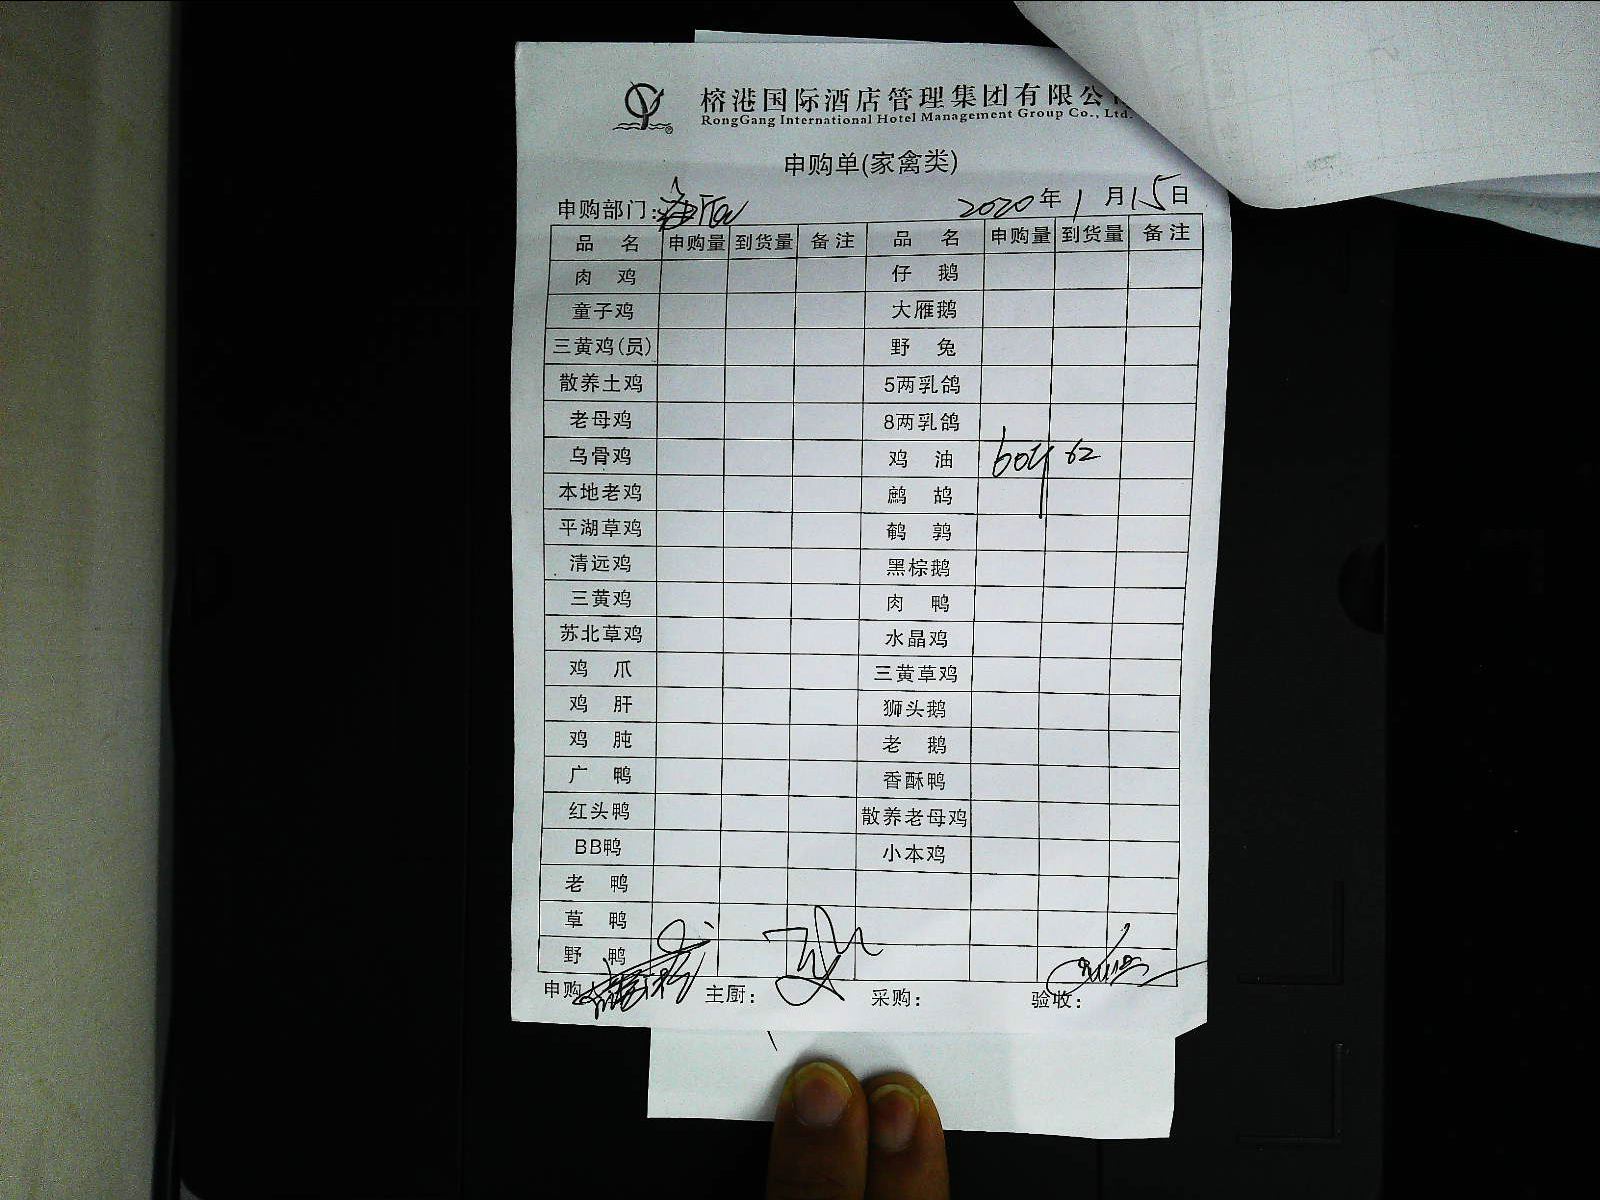 榕港国际酒店管理集团有限公
RongGang International Hotel Management Group Co., Ltd.
申购单(家禽类)
申购部门: 2020年1月15日
品 名 申购量 到货量 备注 品 名 申购量 到货量 备注
肉 鸡 仔 鹅
童子鸡 大雁鹅
三黄鸡(员) 野 兔
散养土鸡 5两乳鸽
老母鸡 8两乳鸽
乌骨鸡 鸡 油 60斤 62
本地老鸡 鹧 鸪
平湖草鸡 鹌 鹑
清远鸡 黑棕鹅
三黄鸡 肉 鸭
苏北草鸡 水晶鸡
鸡 爪 三黄草鸡
鸡 肝 狮头鹅
鸡 肫 老 鹅
广 鸭 香酥鸭
红头鸭 散养老母鸡
BB鸭 小本鸡
老 鸭
草 鸭
野 鸭
申购 主厨: 采购: 验收: